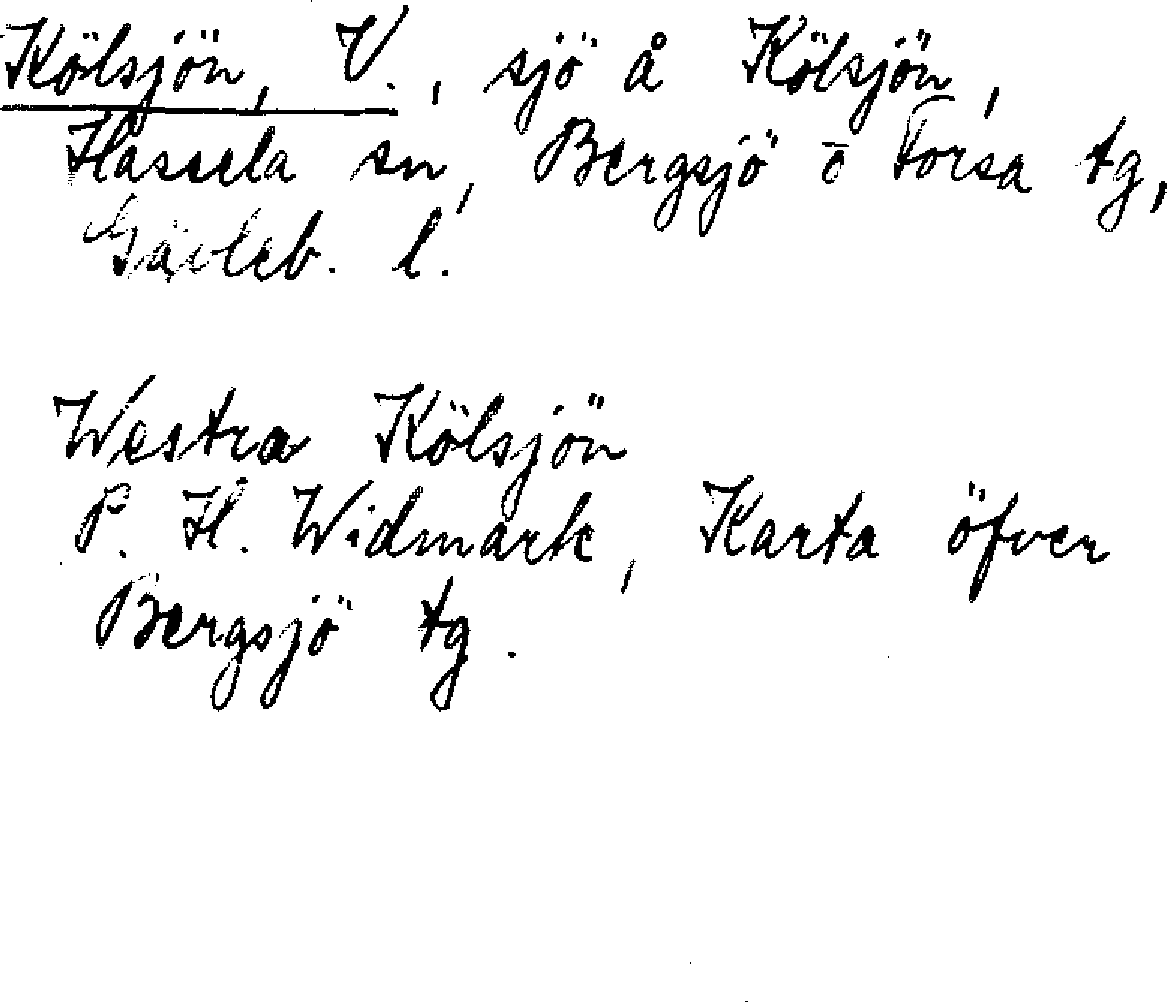 Kölsjön, V., sjö å Kölsjön,
Hassela sn, Bergsjö o Forsa tg,
Gävleb. l.
Westra Kölsjön
P. H. Widmark, Karta öfver
Bergsjö tg.